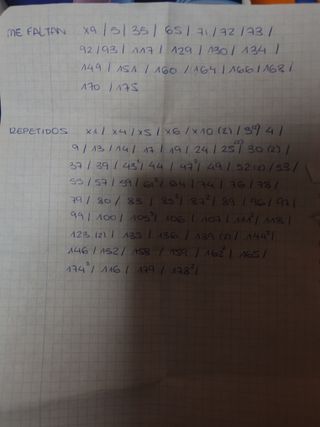 ME FALTAN X9 / 5 / 35 / 65 / 71 / 72 / 73 /
92 / 93 / 117 / 129 / 130 / 134 /
149 / 151 / 160 / 164 / 166 / 168 /
170 / 175
REPETIDOS X1 / X4 / X5 / X6 / X10 (2) / 3 / 4 /
9 / 13 / 14 / 17 / 19 / 24 / 25 / 30 (2) /
37 / 39 / 43² / 44 / 47² / 49 / 52 / 53 /
55 / 57 / 59 / 61² / 64 / 74 / 76 / 78 /
79 / 80 / 83 / 85² / 87² / 89 / 96 / 97 /
99 / 100 / 105² / 106 / 107 / 111² / 118 /
123 (2) / 135 / 136 / 139 (2) / 144² /
146 / 152 / 158 / 159 / 162² / 165 /
174² / 116 / 179 / 178² /